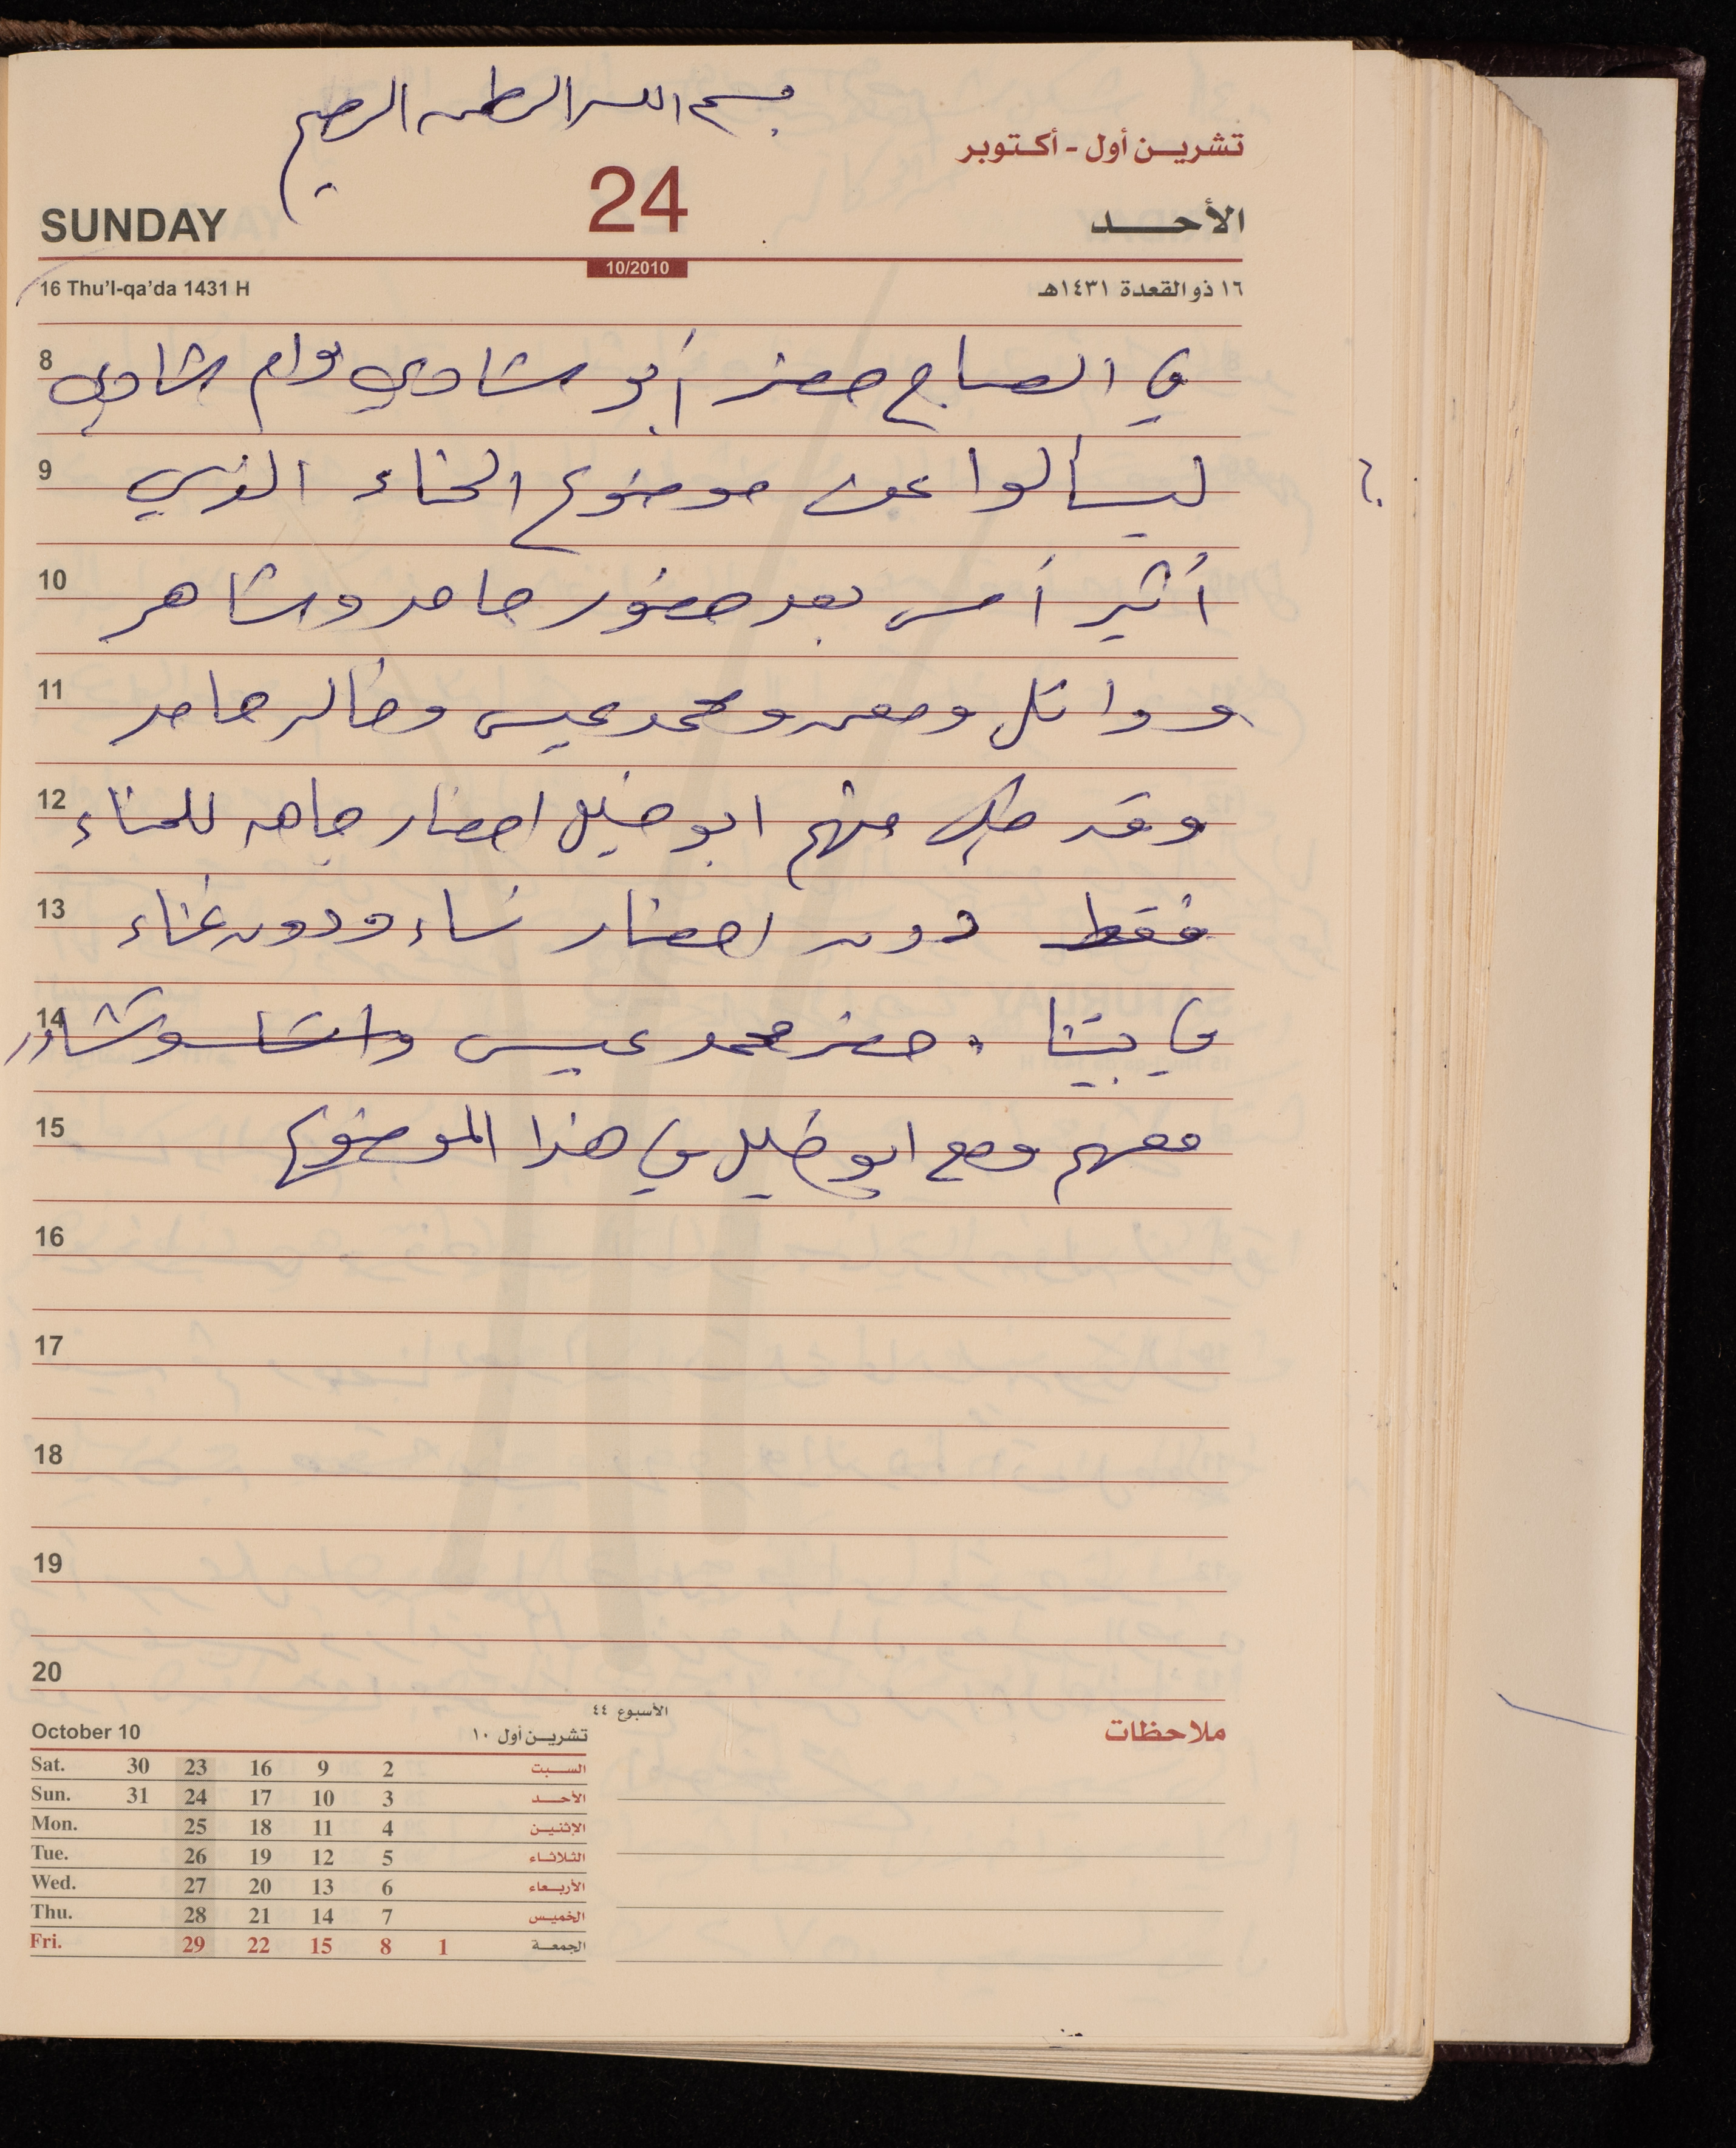 بسم الله الرحمن الرحيم
تشرين أول - أكتوبر
SUNDAY 24 الأحد
10/2010
16 Thu'l-qa'da 1431 H ١٦ ذو القعدة ١٤٣١هـ
8 في الصباح حضر أبو شادي وام شادي
9 ليسألوا عن موضوع الحناء الذي
10 أثير أمس بعد حضور حامد وشاهر
11 ووائل ومعن ومحمد عيسى وخالد حامد
12 وقد طلب منهم ابو خليل احضار جاهه للحناء
13 فقط دون احضار نساء ودون غناء
14 في بيتنا . حضر محمد عيسى وتشاور
15 معهم ومع ابو خليل في هذا الموضوع
16
17
18
19
20
الأسبوع ٤٤
ملاحظات
October 10 تشرين أول ١٠
Sat. 30 23 16 9 2 السبت
Sun. 31 24 17 10 3 الأحد
Mon. 25 18 11 4 الإثنين
Tue. 26 19 12 5 الثلاثاء
Wed. 27 20 13 6 الأربعاء
Thu. 28 21 14 7 الخميس
Fri. 29 22 15 8 1 الجمعة